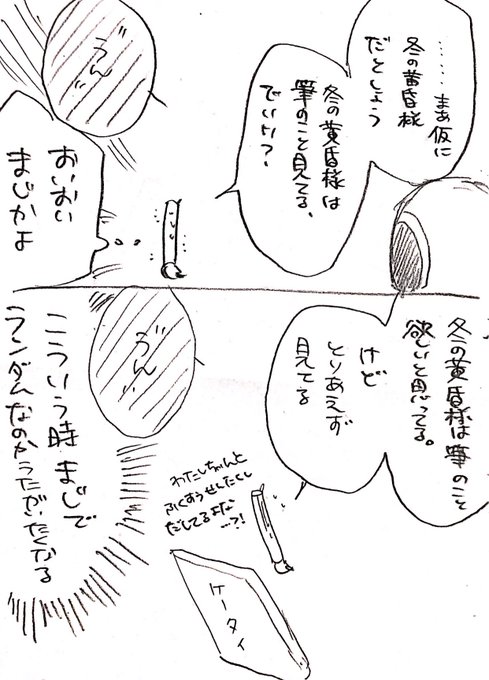 ……まあ仮に
冬の黄昏様
だとしよう
冬の黄昏様は
筆のこと見てる、
でいい?
"うん"
おいおい
まじかよ
冬の黄昏様は筆のこと
欲しいと思ってる。
けど
とりあえず
見てる
"うん"
わたしちゃんと
ふくすうせんたくし
だしてるよな
…?!
ケータイ
こういう時まじで
ランダムなのかうたがいたくなる